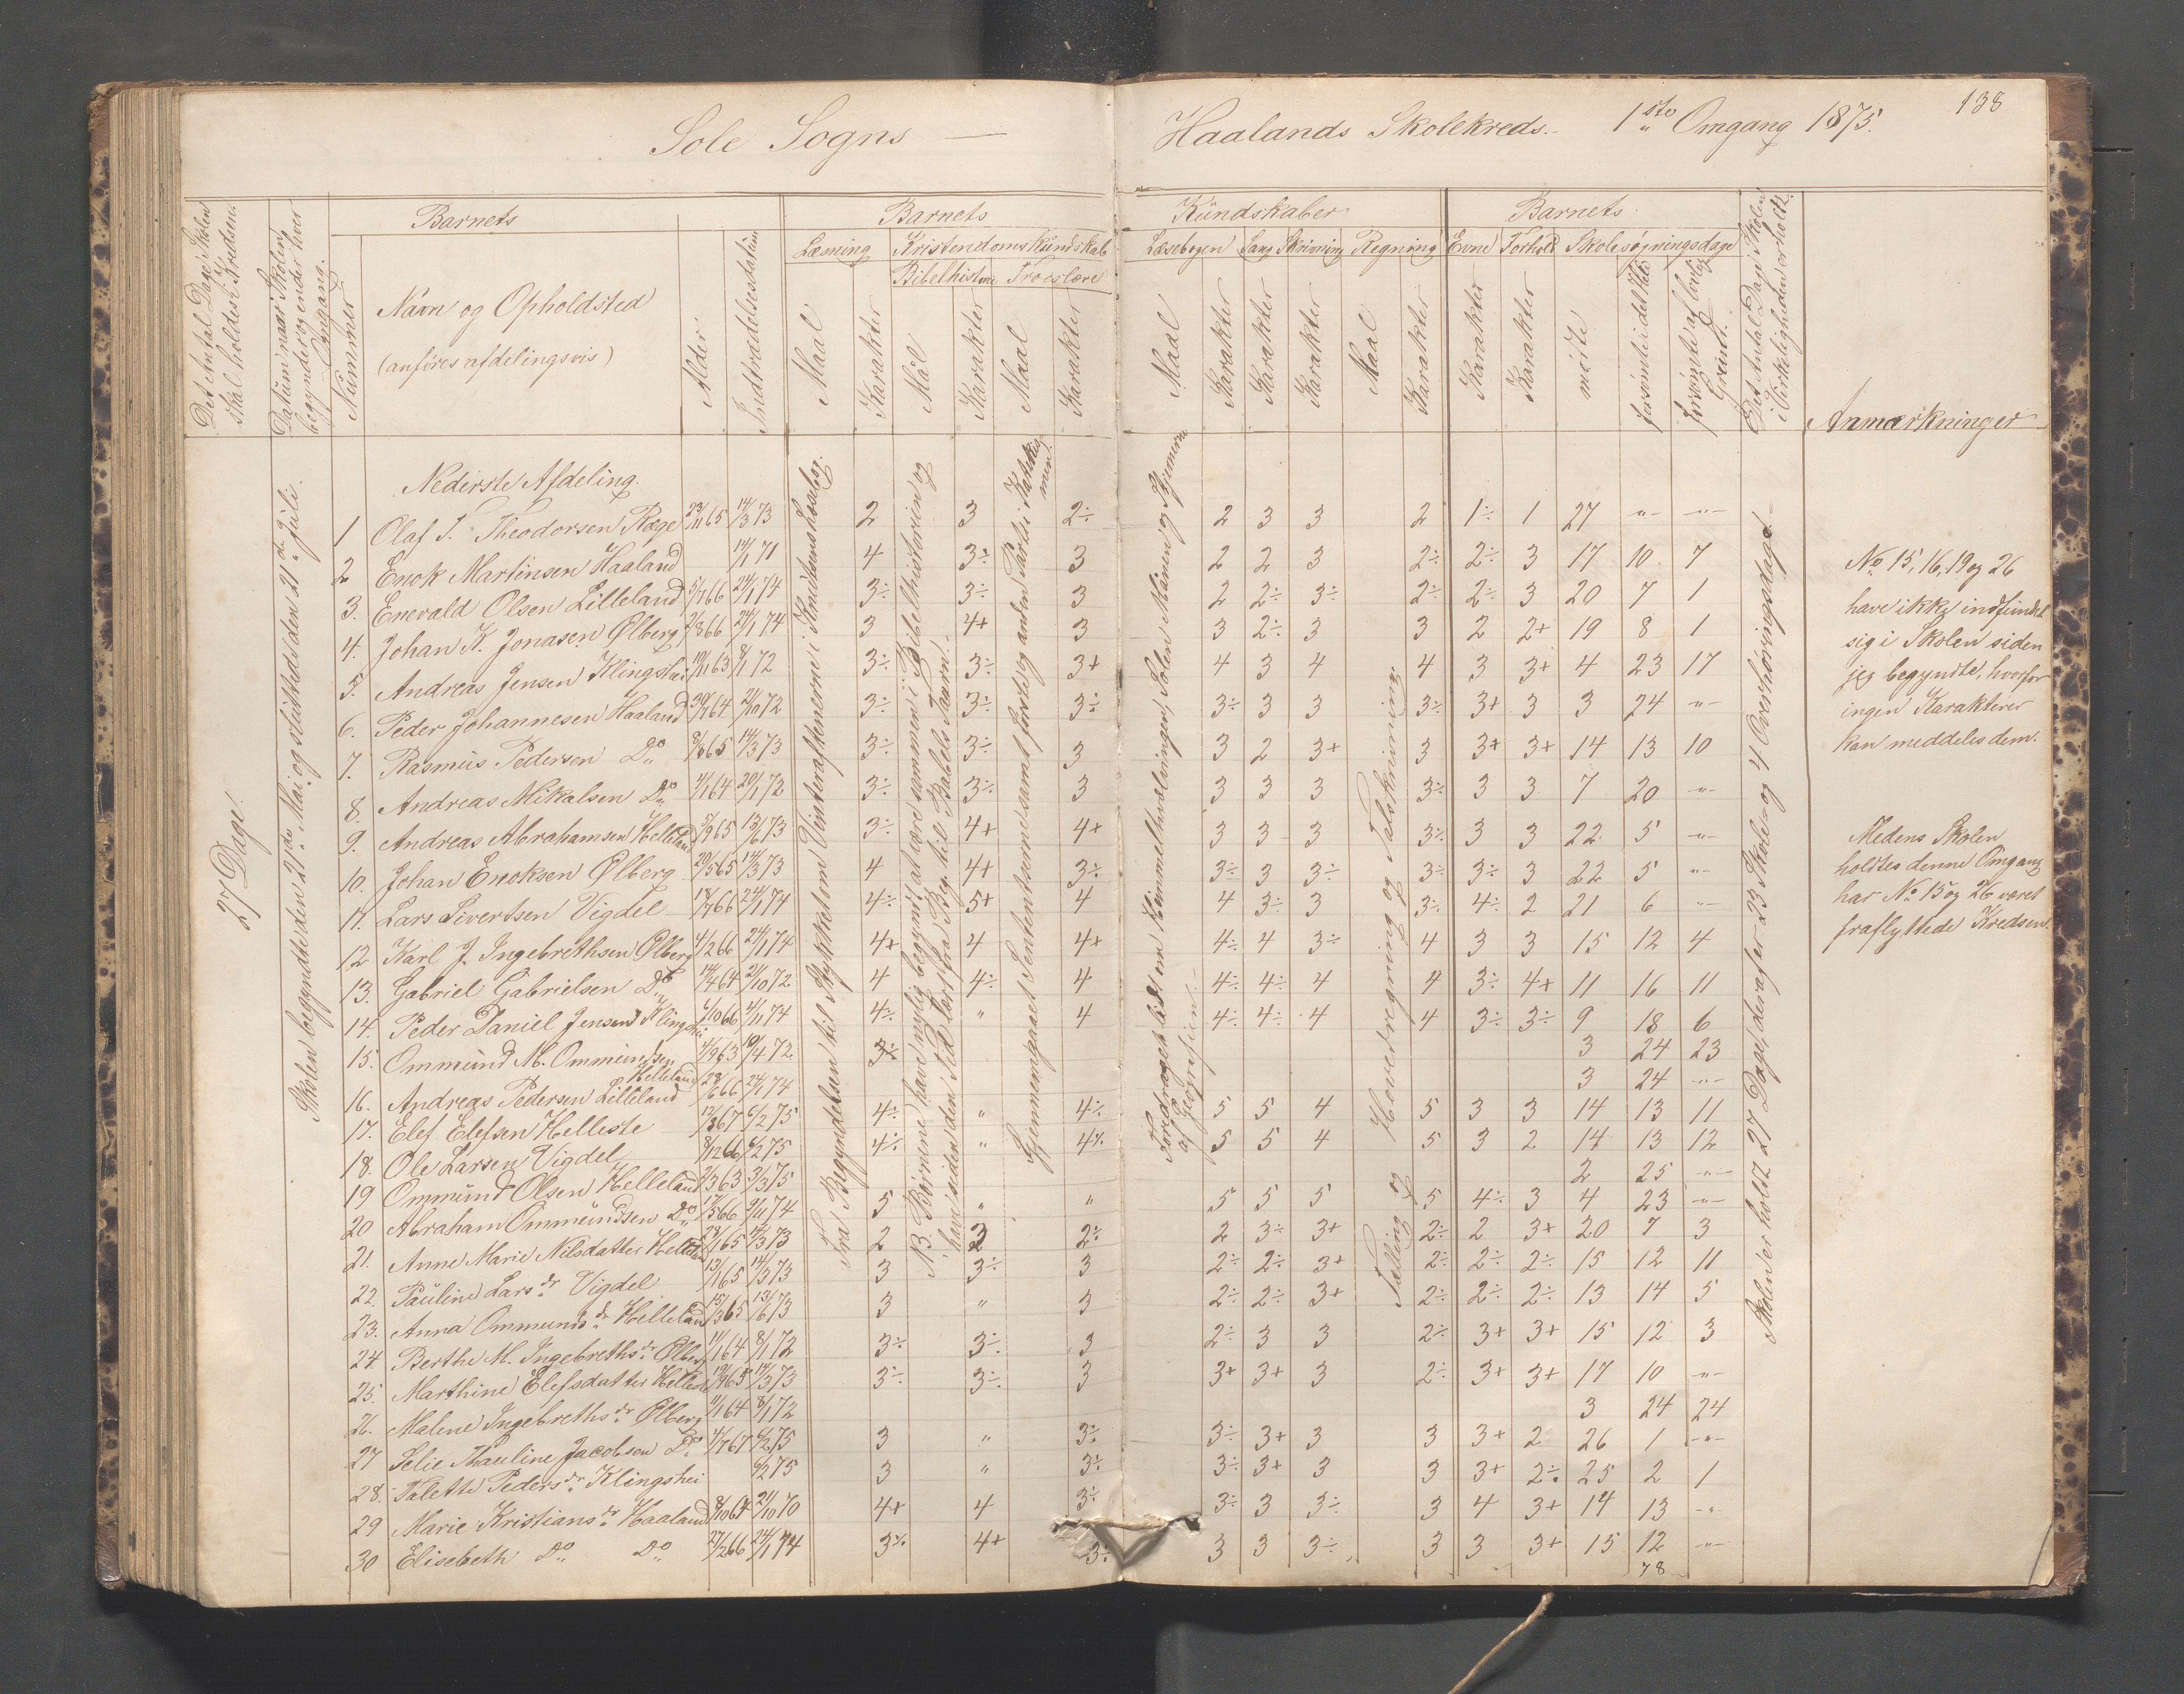 Sole Sogns —
Haalands Skolekreds. — 1ste Omgang 1875.
138
Det Antal Dage Skolen
skal holdes i Kredsen.
Datum naar Skolen
begynder og ender hver
Omgang.
Nummer
Barnets
Navn og Opholdsted
(anføres afdelingsvis)
Alder
Indtrædelsesdatum
Barnets
Læsning
Kristendomskundskab
Bibelhistorie
Troeslære
Maal
Karakter
Mål
Karakter
Maal
Karakter
Kundskaber
Læsebogen Sang Skrivning Regning
Maal
Karakter
Karakter
Karakter
Maal
Karakter
Barnets
Evne Forhold Skolesøgningsdage
Karakter
Karakter
mødte
forsømte i det Hele
forsømte af lovlig
Grund.
Det Antal Dage Skolen
i Virkeligheden er holdt.
Anmærkninger
27 Dage!
Skolen begyndte den 21de Mai og sluttede den 21de Juli.
Fra Begyndelsen til Stykket om Vinteraftenerne i Knudsens Læsebog.
N.B. Børnene have nylig begyndt at være sammen i Bibelhistorien og
have siden den Tid lært fra Beg. til Babels Taarn!
Gjennemgaaet Sententserne samt første og anden Part i Katekis
men!
Foredraget lidt om Himmelhvælvingen, Solen Maanen og Stjernerne
af Geografien!
Tælling og Hovedregning og Talskrivning
Skolen er holdt 27 Dage, deraf er 23 Skole- og 4 Overhøringsdage —
Nederste Afdeling.
1 Olaf T. Theodorsen Ræge 23/11 65 14/3 73 2 3 2÷ 2 3 3 2 1÷ 1 27 -"- -"-
2 Enok Martinsen Haaland 14/1 71 4 3÷ 3 2 2 3 2÷ 2÷ 3 17 10 7
3. Enevald Olsen Lilleland 5/7 66 24/1 74 3÷ 3÷ 3 2 2÷ 3÷ 2÷ 2÷ 3 20 7 1
4. Johan K. Jonasen Ølberg 2/8 66 24/1 74 3 4+ 3 3 2÷ 3 3 2 2+ 19 8 1
5. Andreas Jensen Klingshei 19/11 63 8/1 72 3÷ 3÷ 3+ 4 3 4 4 3 3+ 4 23 17
6. Peder Johannesen Haaland 30/7 64 21/10 72 3÷ 3÷ 3÷ 3÷ 3 3 3÷ 3+ 3 3 24 -"-
7. Rasmus Pedersen Do 8/3 65 14/3 73 3÷ 3÷ 3 3 2 3+ 3 3+ 3+ 14 13 10
8. Andreas Mikalsen Do 4/1 64 20/1 72 3÷ 3÷ 3 3 3 3 3÷ 3 3 7 20 -"-
9. Andreas Abrahamsen Helleland 5/9 65 13/6 73 3÷ 4+ 4+ 3 3 3 3÷ 3 3 22 5 -"-
10. Johan Enoksen Ølberg 29/5 65 14/3 73 4 4+ 3÷ 3÷ 3 3÷ 3÷ 3÷ 3 22 5 -"-
11. Lars Sivertsen Vigdel 17/7 66 24/1 74 4÷ 5+ 4 4 3÷ 3 3÷ 4÷ 2 21 6 -"-
12 Karl J. Ingebrethsen Ølberg 4/2 66 24/1 74 4+ 4 4+ 4÷ 4 3÷ 4 3 3 15 12 4
13. Gabriel Gabrielsen Do 14/4 64 21/10 72 4 4÷ 4 4÷ 4÷ 4 4 3÷ 4+ 11 16 11
14. Peder Daniel Jensen Klingshei 6/10 66 4/11 74 4÷ " 4 4÷ 4÷ 4 4 3÷ 3÷ 9 18 6
15. Ommund M. Ommundsen Helleland 4/9 63 19/4 72 3÷ 3 24 23
16. Andreas Pedersen Lilleland 28/6 66 24/1 74 3 24 -"-
17. Elef Elefsen Helleste 12/3 67 6/2 75 4÷ " 4÷ 5 5 4 5 3 3 14 13 11
18. Ole Larsen Vigdel 8/12 66 6/2 75 4÷ " 4÷ 5 5 4 5 3 2 14 13 12
19 Ommund Olsen Helleland 2/3 63 3/3 75 2 25 -"-
20 Abraham Ommundsen Do 17/5 66 9/11 74 5 " " 5 5 5 5 4÷ 3 4 23 -"-
21. Anne Marie Nilsdatter Helleland 23/1 65 14/3 73 2 3 2÷ 2 3÷ 3+ 2÷ 2 3+ 20 7 3
22. Pauline Larsdr Vigdel 13/1 65 14/3 73 3 3÷ 3 2÷ 2÷ 3+ 2÷ 2÷ 2÷ 15 12 11
23. Anna Ommundsdr Helleland 15/3 65 13/6 73 3 " 3 2÷ 2÷ 3+ 2÷ 2÷ 2÷ 13 14 5
24. Berthe M. Ingebrethsdr Ølberg 11/1 64 8/1 72 3÷ 3÷ 3 2÷ 3 3 2÷ 3+ 3+ 15 12 3
25. Marthine Elefsdatter Helleste 19/9 65 14/3 73 3÷ 3÷ 3 3+ 3+ 3 2÷ 3+ 3+ 17 10 -"-
26. Malene Ingebrethsdr Ølberg 11/1 64 8/1 72 3 24 24
27 Selie Thauline Jacobsen Do 4/7 67 6/2 75 3 " 3÷ 3÷ 3+ 3 3 3+ 2 26 1 -"-
28. Talette Pedersdr Klingshei 6/2 75 3 " 3÷ 3÷ 3+ 3 3 3+ 2÷ 25 2 1
29 Marie Kristiansdr Haaland 8/10 61 21/10 70 4+ 4 3÷ 3÷ 3 3÷ 3 4 3+ 14 13 -"-
30 Elisebeth Do Do 27/2 66 24/1 74 3÷ 4+ 3÷ 3 3 3÷ 3 3 3+ 15 12 -"-
78
No 15, 16, 19 og 26
have ikke indfundet
sig i Skolen siden
jeg begyndte, hvorfor
ingen Karakterer
kan meddeles dem.
Medens Skolen
holdtes denne Omgang
har No 15 og 26 været
fraflyttede Kredsen.